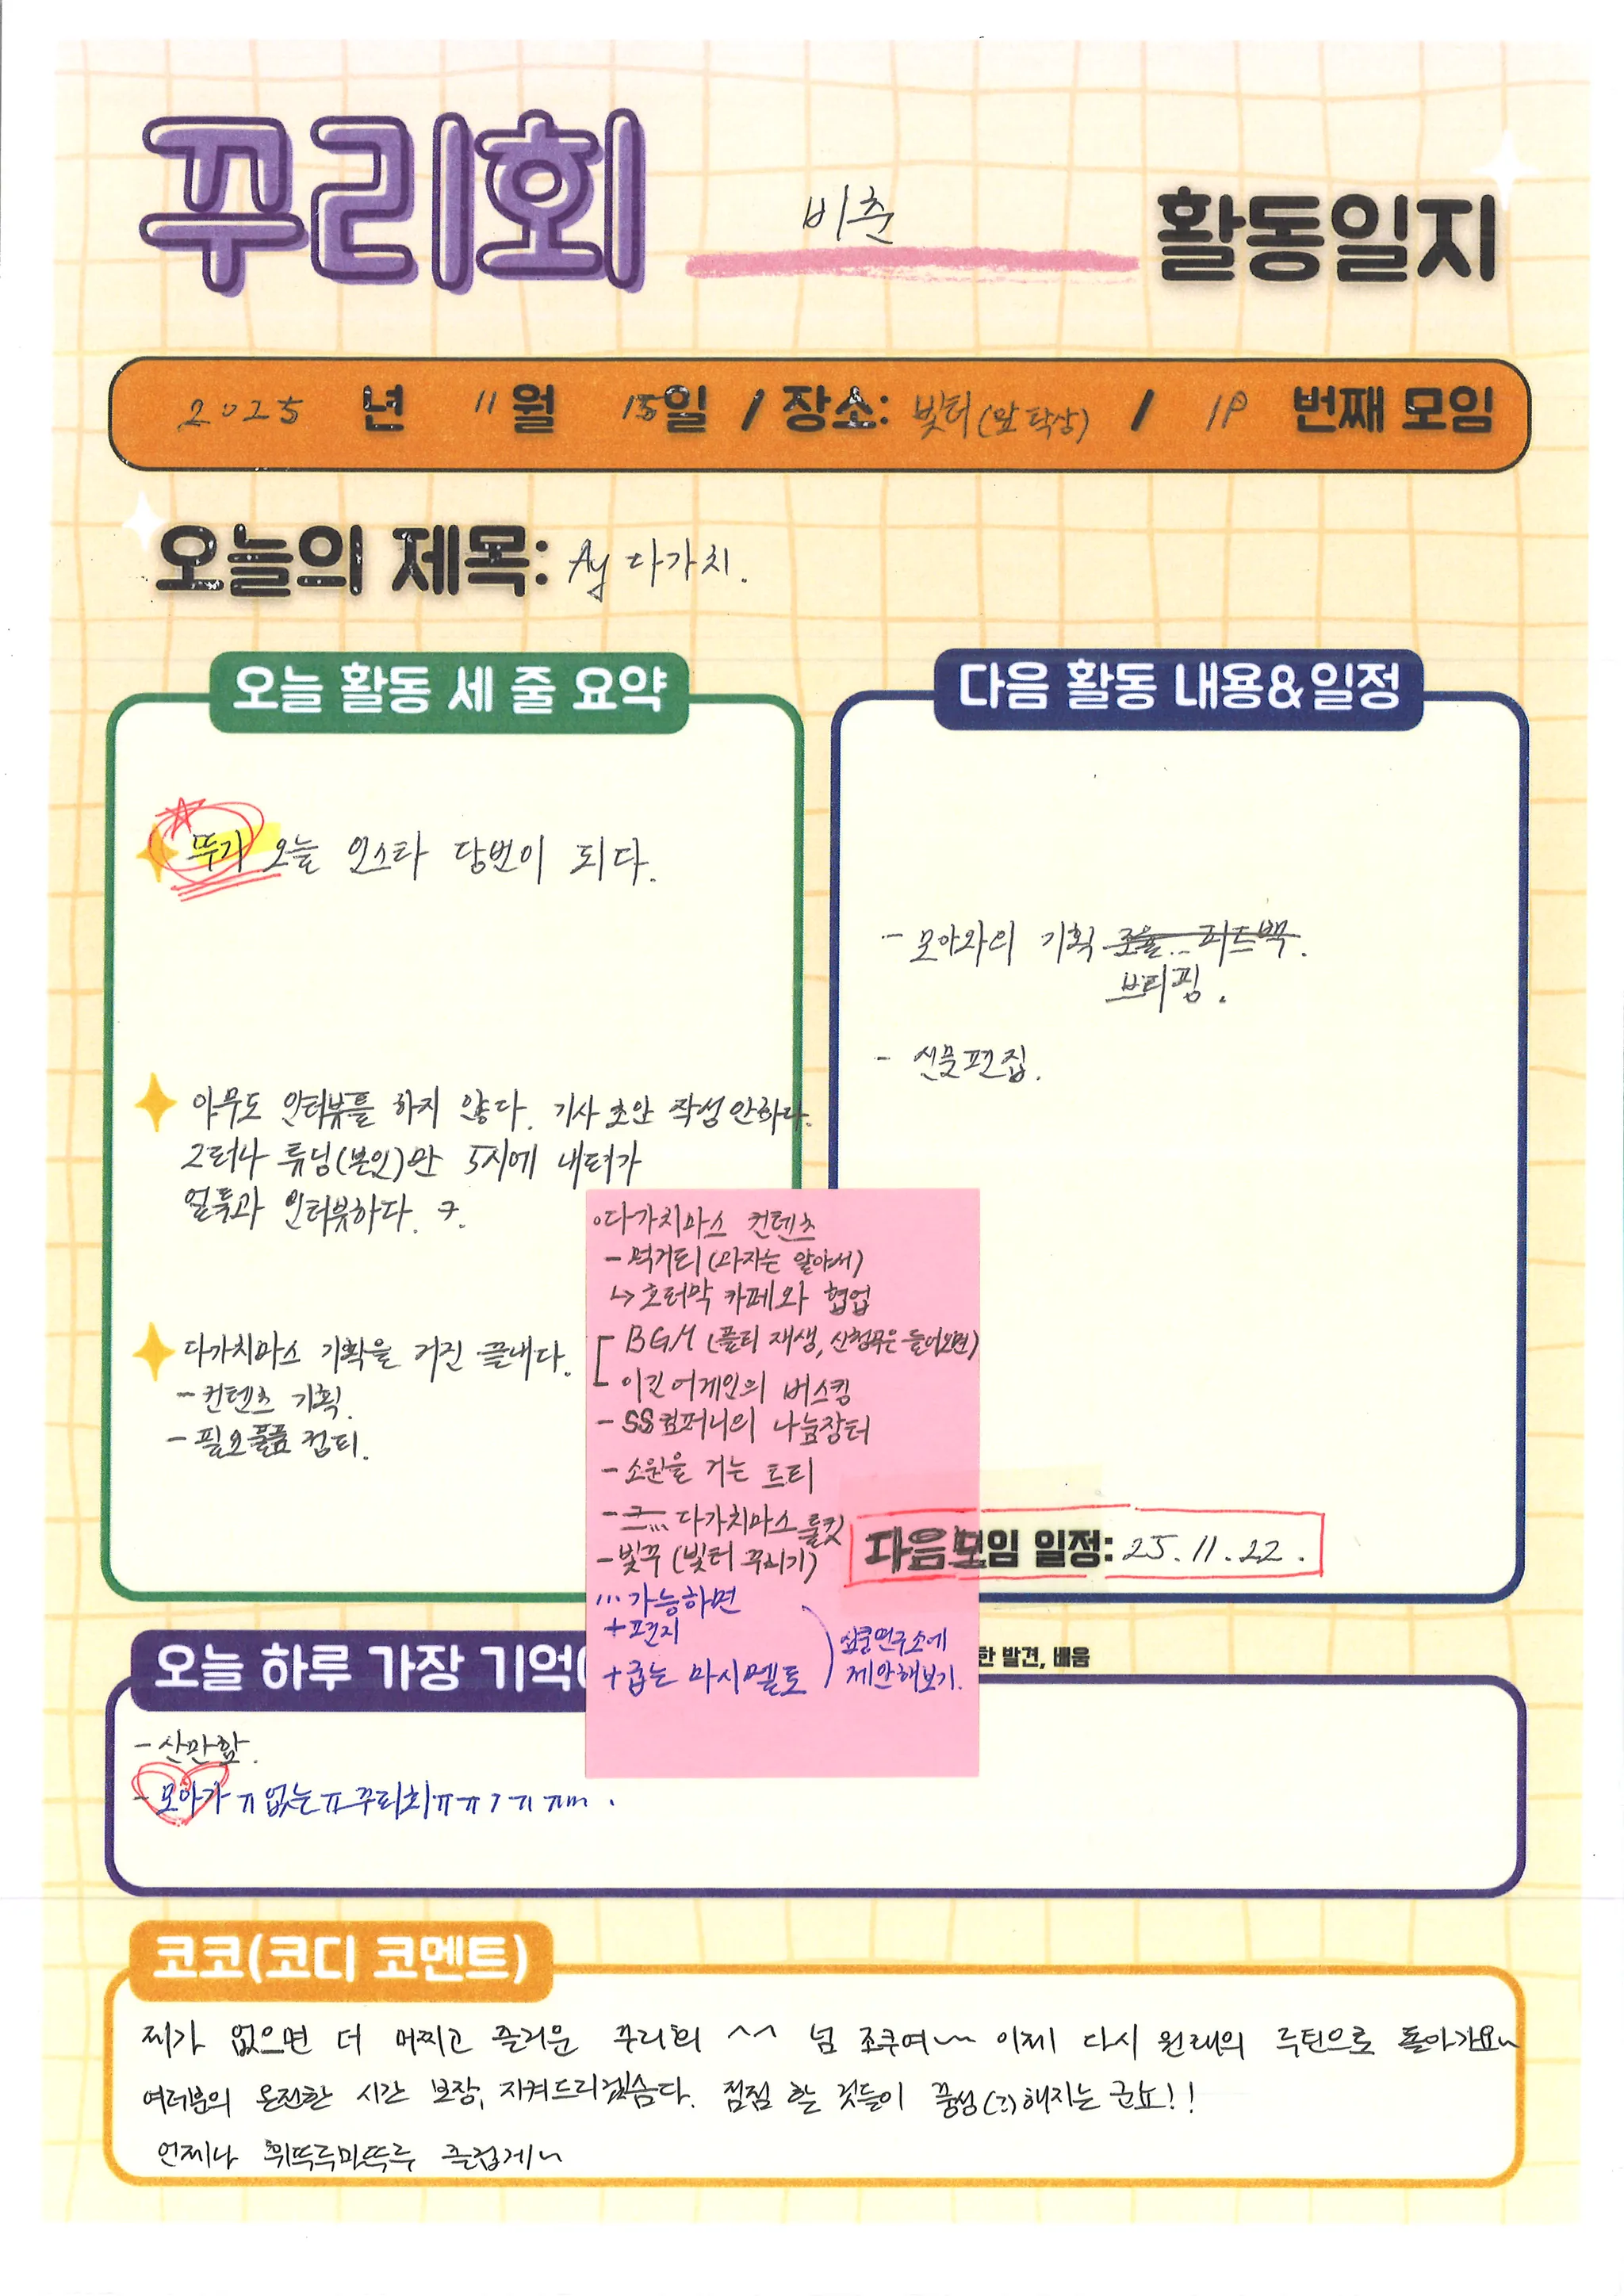 꾸리회 비춘 활동일지
2025 년 11월 15일 / 장소: 빛터(앞 탁상) / 19 번째 모임
오늘의 제목: Ay 다가치.
오늘 활동 세 줄 요약
뚜기 오늘 인스타 당번이 되다.
아무도 인터뷰를 하지 않다. 기사 초안 작성 안하다.
그러나 튜닝(본인)만 5시에 내터가
얼룩과 인터뷰하다. ㅋ.
다가치마스 기획을 거진 끝내다.
- 컨텐츠 기획.
- 필요물품 컴티.
다음 활동 내용&일정
- 모아와의 기획 조율... 피드백.
브리핑.
- 신문편집.
다음모임 일정: 25.11.22.
다가치마스 컨텐츠
- 먹거리(과자는 알아서)
↳ 호터막 카페와 협업
BGM (플리 재생, 신청곡은 들어오면)
이긴어게인의 버스킹
- SS컴퍼니의 나눔장터
- 소원을 거는 트리
- 다가치마스 룰킷
- 빛꾸 (빛터 꾸미기)
... 가능하면
+ 편지
+ 굽는 마시멜로
실쿵연구소에
제안해보기.
오늘 하루 가장 기억
한 발견, 배움
- 산만함.
- 모아가 ㅠ 없는 ㅠ 꾸리회ㅠㅠㅠㅠ
코코(코디 코멘트)
찌가 없으면 더 머찌고 즐거운 꾸리회 ^^ 넘 조쿠여~~ 이제 다시 원래의 루틴으로 돌아가요~
여러분의 온전한 시간 보장, 지켜드리겠슴다. 점점 할 것들이 풍성(?)해지는 군요!!
언제나 휘뚜루마뚜루 즐겁게~